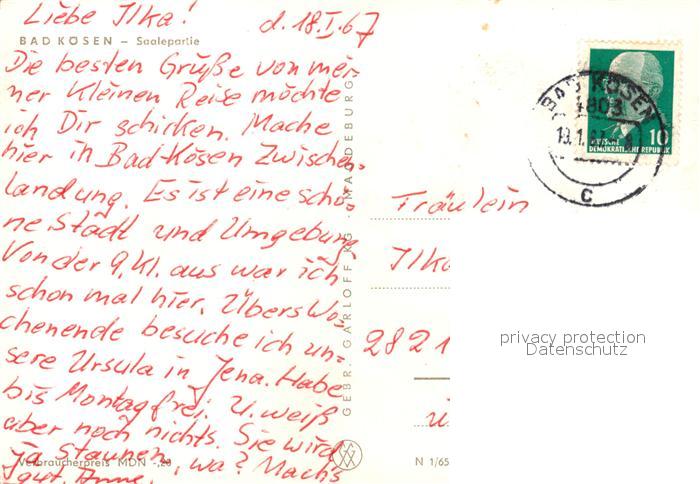 Liebe Ilka! d. 18.I.67
BAD KÖSEN – Saalepartie
Die besten Grüße von mei-
ner kleinen Reise möchte
ich Dir schicken. Mache
hier in Bad Kösen Zwischen-
landung. Es ist eine schö-
ne Stadt und Umgebung.
Von der 9. Kl. aus war ich
schon mal hier. Übers Wo-
chenende besuche ich un-
sere Ursula in Jena. Habe
bis Montag frei. U. weiß
aber noch nichts. Sie wird
ja staunen, wa? Mach's
gut. Anne.
Verbraucherpreis MDN -,20
GEBR. GARLOFF KG · MAGDEBURG
N 1/65
BAD KÖSEN
4803
C
10
DEUTSCHE
DEMOKRATISCHE REPUBLIK
Fräulein
Ilka
2821
privacy protection
Datenschutz